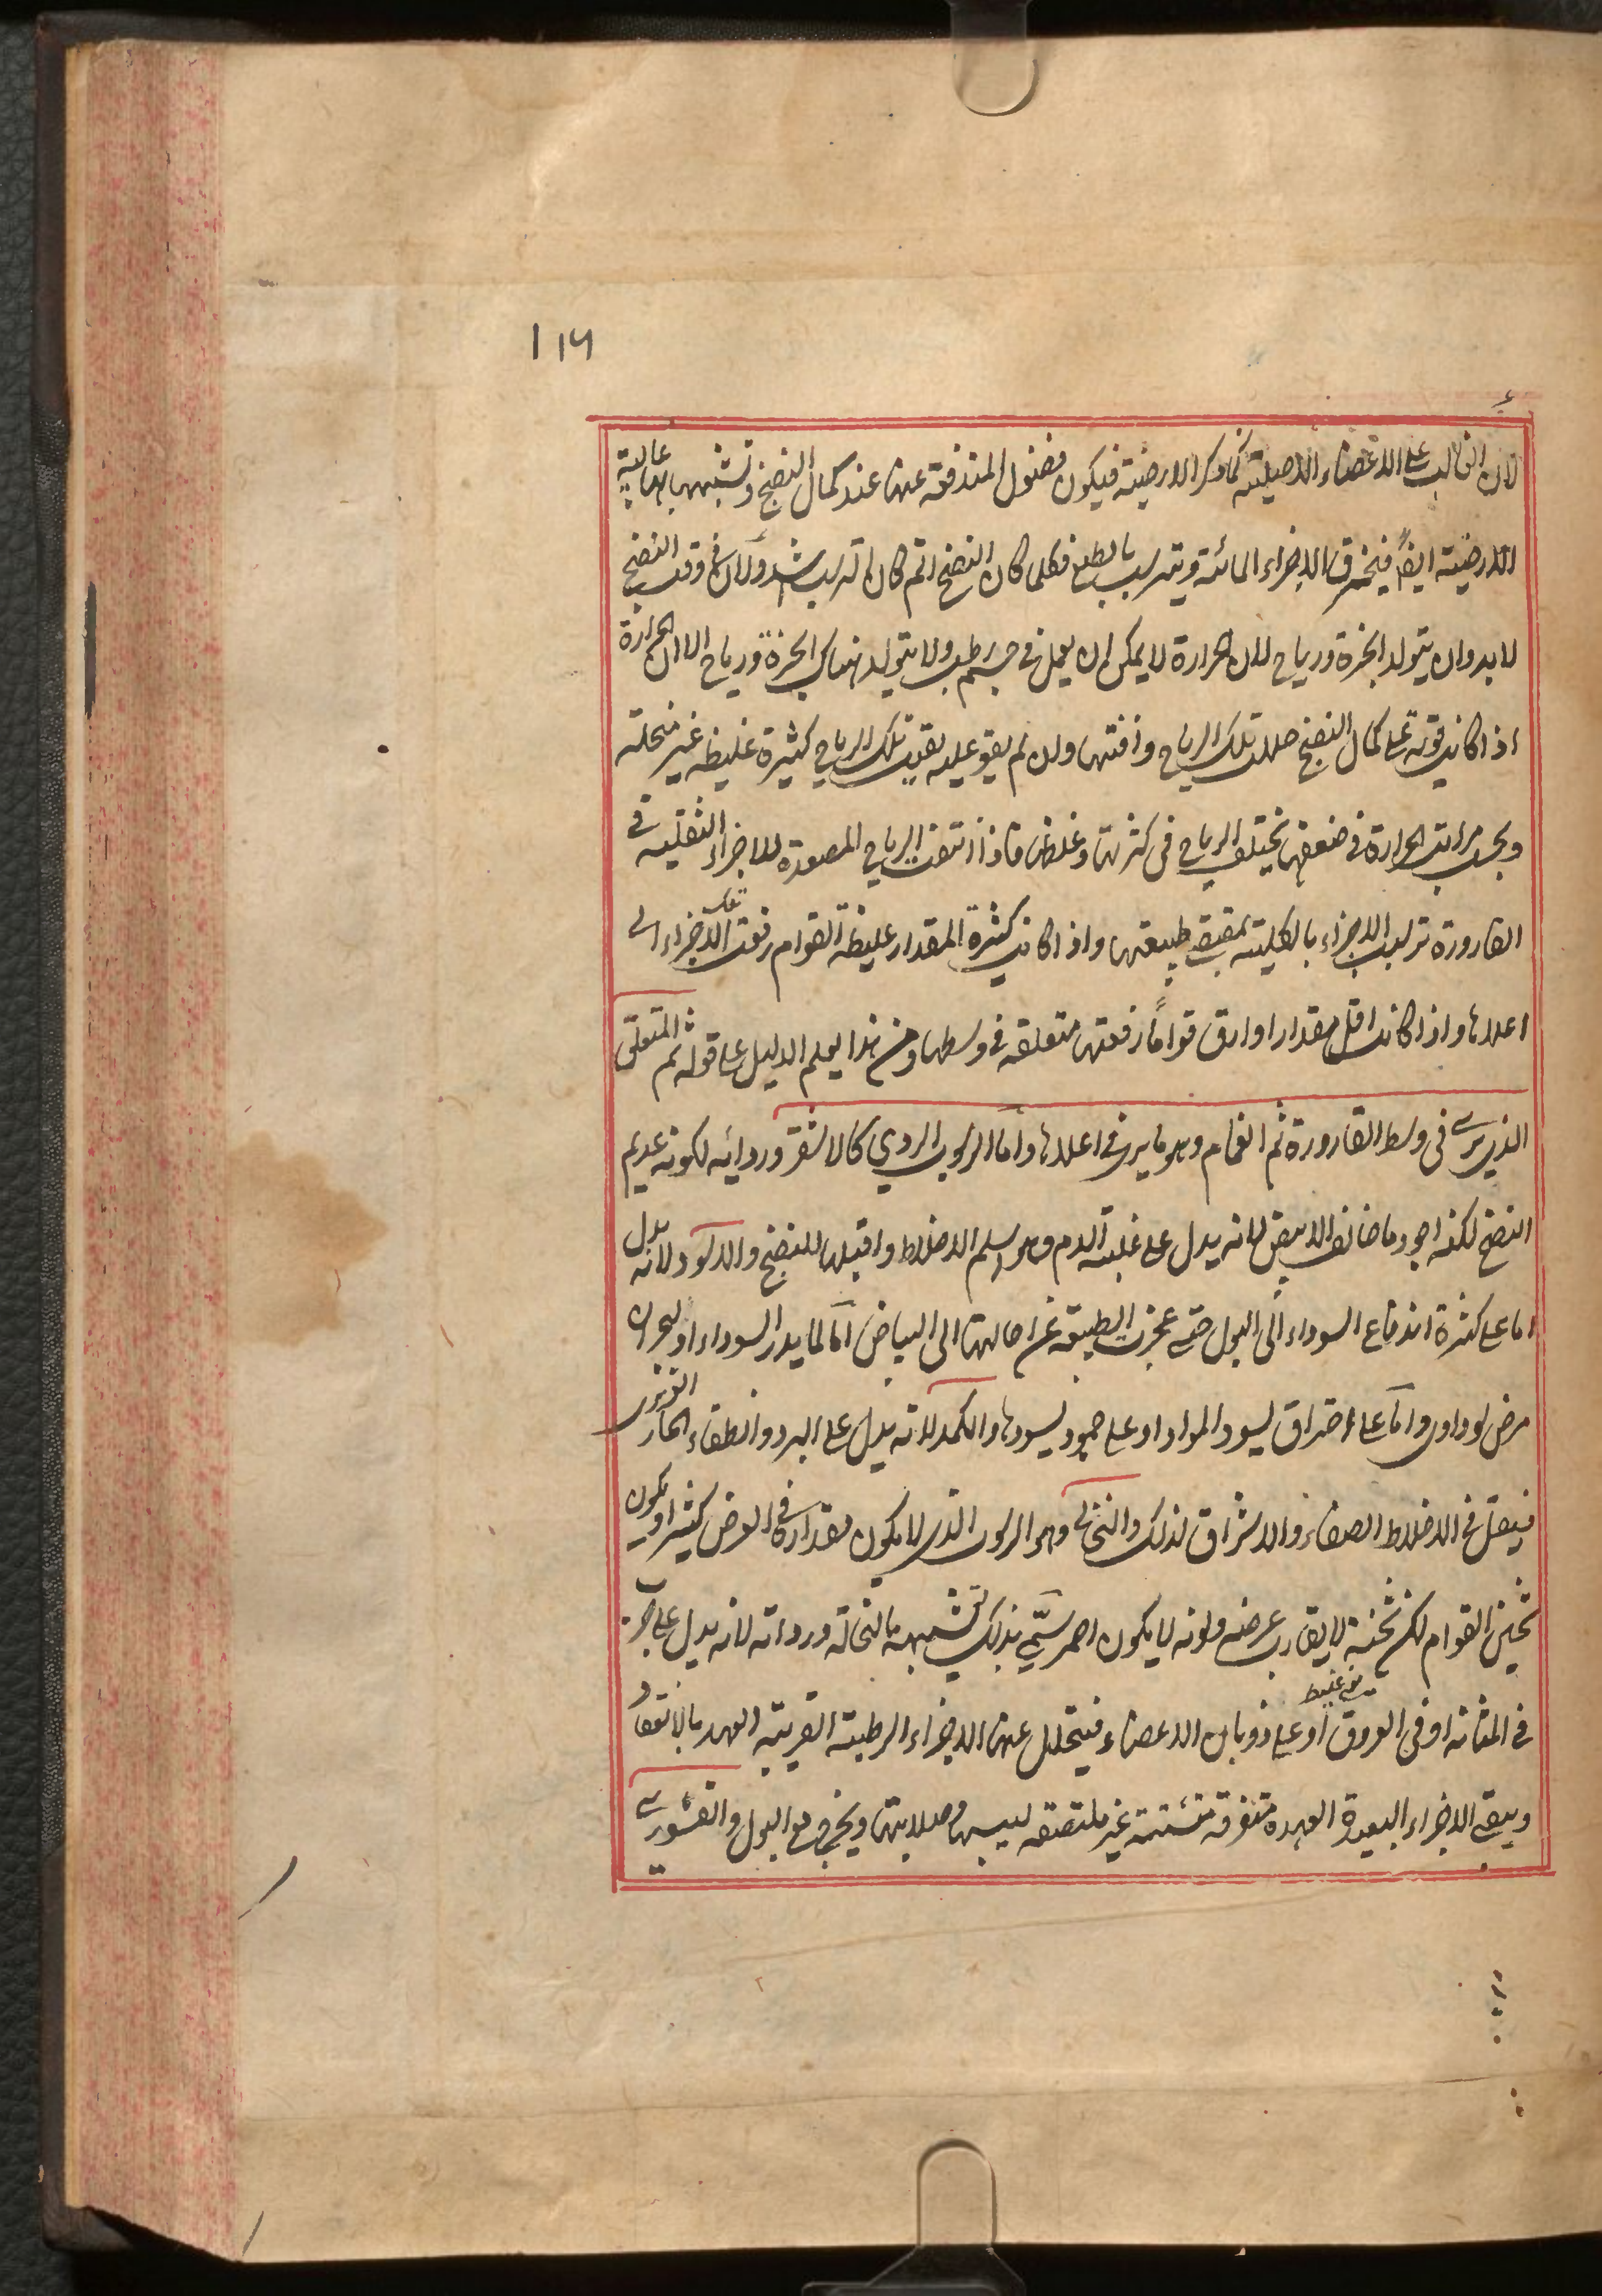 ١١٦
لان الغالب على الاعضاء الاصلية كما ذكر الارضية فيكون فضول المندفعة عنها عند كمال النضج وتشبهها بها غالبة
الارضية ايضاً فيخرق الاجزاء المائية ويترسب بالطبع فكلما كان النضج اتم كان الترسب اشد ولان فى وقت النضج
لابد وان يتولد ابخرة ورياح لان الحرارة لا يمكن ان يعمل فى جسم رطب ولا يتولد هناك ابخرة ورياح الا ان الحرارة
اذا كانت قوية على كمال النضج حللت تلك الرياح وافنتها وان لم يقو عليه بقيت تلك الرياح كثيرة غليظة غير منحلة
وبحسب مراتب الحرارة فى ضعفها يختلف الرياح فى كثرتها وغلظها فاذا انتفت الرياح المصعدة للاجزاء الثفلية فى
القارورة ترسب الاجزاء بالكلية بمقتضى طبيعتها واذا كانت كثيرة المقدار غليظة القوام رفعت تلك الاجزاء الى
اعلاها واذا كانت اقل مقدارا او ارق قواماً رفعتها متعلقة فى وسطها ومن هذا يعلم الدليل على قوله ثم المتعلق
الذى يرى فى وسط القارورة ثم الغمام وهو ما يرى فى اعلاها واما الرسوب الردي كالاشقر وردائه لكونه عديم
النضج لكنه اجود ما خالف الابيض لانه يدل على غلبة الدم وهو اسلم الاخلاط واقبلها للنضج والاسود لانه يدل
اما على كثرة اندفاع السوداء الى البول حتى عجزت الطبيعة عن احالتها الى البياض اما لما يدر السوداء او لبحران
مرض سوداوى واما على احتراق يسود المواد او على جمود يسودها والكمد لانه يدل على البرد وانطفاء الحار الغريزى
فيقل فى الاخلاط الصفاء والاشراق لذلك والنخالى وهو الرسوب الذى لا يكون مقداره فى العرض كثيرا ويكون
ثخين القوام لكن ثخنه لا يقارب عرضه ولونه لا يكون احمر سمّي بذلك لتشبهه بالنخالة ورداءته لانه يدل على جرب
فى المثانة او فى العروق او على ذوبان الاعضاء فيتحلل عنها الاجزاء الرطبة القريبة العهد بالانعقاد
ويبقى الاجزاء البعيدة العهد متفرقة متشتتة غير ملتصقة ليبسها وصلابتها ويخرج مع البول والقشورى